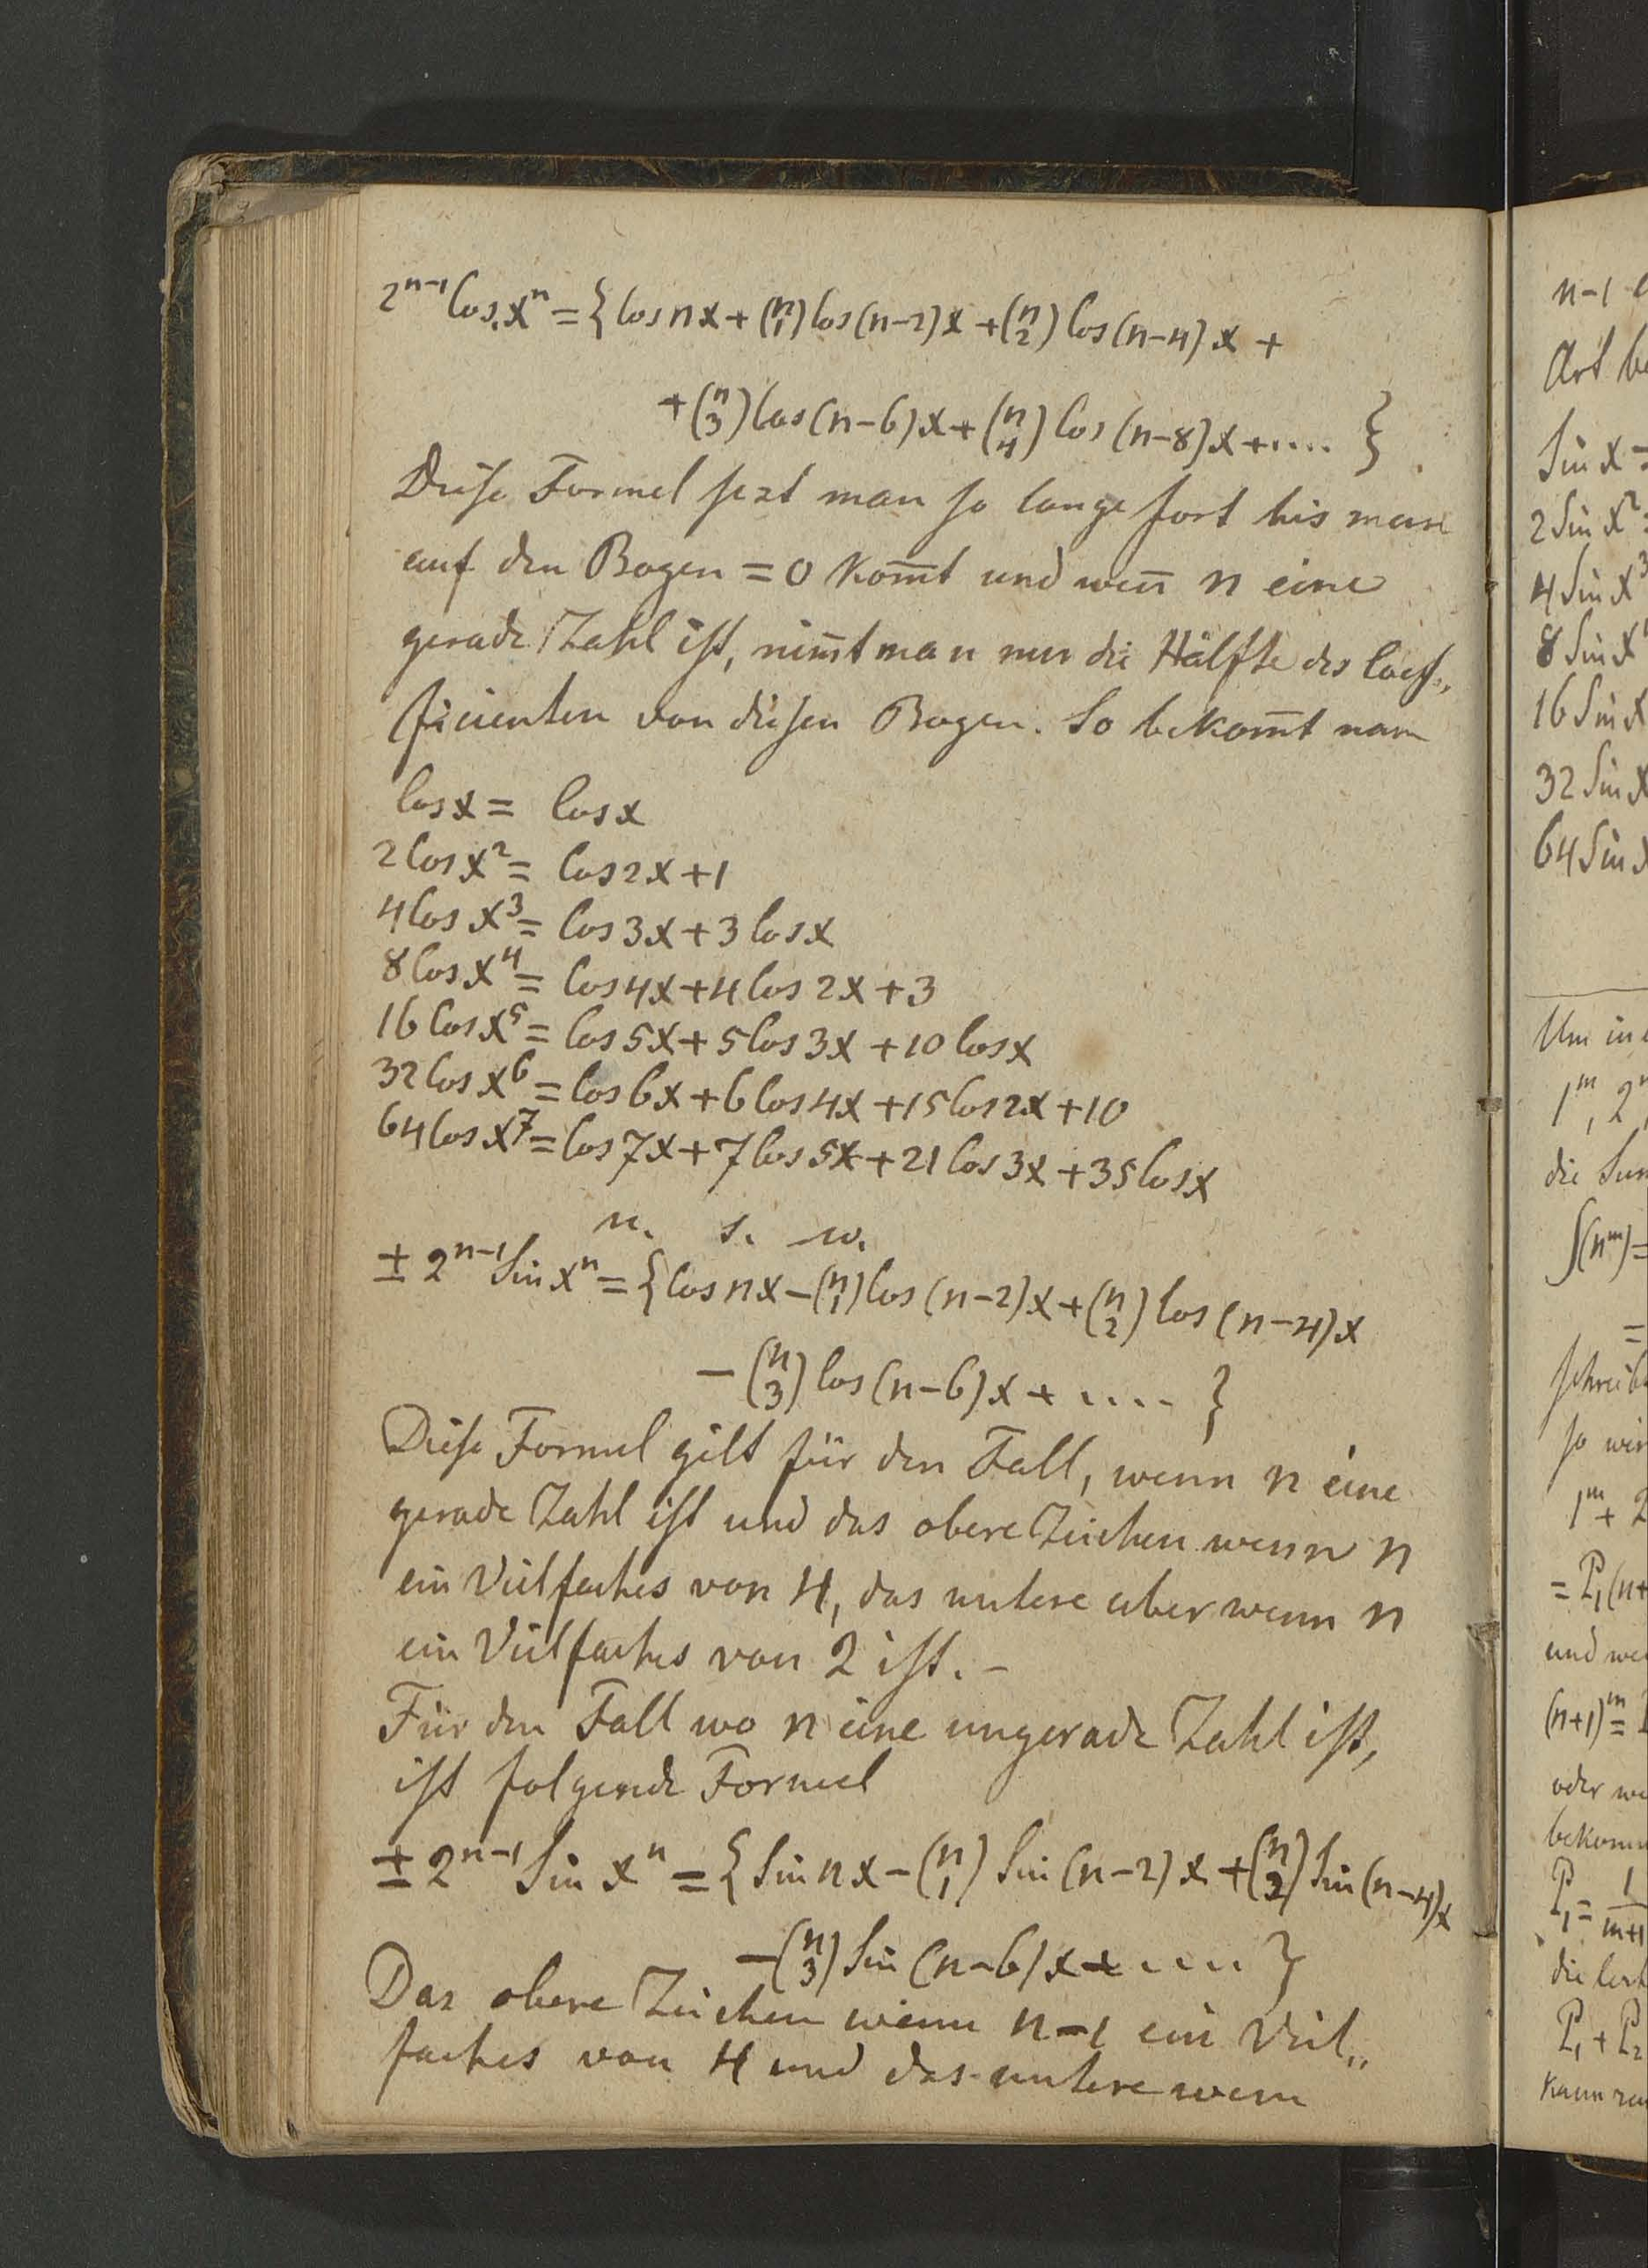 2ⁿ⁻¹ Cos.xⁿ = {Cos nx + (n 1) Cos(n-2)x + (n 2) Cos(n-4)x +
+ (n 3) Cos(n-6)x + (n 4) Cos(n-8)x + .... }
Diese Formel sezt man so lange fort bis man
auf den Bogen = 0 kom̅t und wen̅ n eine
gerade Zahl ist, nim̅t man nur die Hälfte des Coef„
ficienten von diesen Bogen. So bekom̅t man
Cos x = Cos x
2 Cos x² = Cos 2x + 1
4 Cos x³ = Cos 3x + 3 Cos x
8 Cos x⁴ = Cos 4x + 4 Cos 2x + 3
16 Cos x⁵ = Cos 5x + 5 Cos 3x + 10 Cos x
32 Cos x⁶ = Cos 6x + 6 Cos 4x + 15 Cos 2x + 10
64 Cos x⁷ = Cos 7x + 7 Cos 5x + 21 Cos 3x + 35 Cos x
u. s. w.
± 2ⁿ⁻¹ Sin xⁿ = {Cos nx - (n 1) Cos (n-2)x + (n 2) Cos (n-4)x
- (n 3) Cos (n-6)x + .... }
Diese Formel gilt für den Fall, wenn n eine
gerade Zahl ist und das obere Zeichen wenn n
ein Vielfaches von 4, das untere aber wenn n
ein Vielfaches von 2 ist. -
Für den Fall wo n eine ungerade Zahl ist,
ist folgende Formel
± 2ⁿ⁻¹ Sin xⁿ = {Sin nx - (n 1) Sin (n-2)x + (n 2) Sin (n-4)x
- (n 3) Sin (n-6)x + .... }
Das obere Zeichen wenn n-1 ein Viel„
faches von 4 und das untere wenn
n-1
Art
Sin x =
2 Sin x² =
4 Sin x³
8 Sin x
16 Sin x
32 Sin x
64 Sin
Um in
1ᵐ, 2
die
∫(nᵐ) =
=
so
1ᵐ + 2
= P₁(n+
und
(n+1)ᵐ =
oder
P₁ = 1/m+1
die
P₁ + P₂
kann